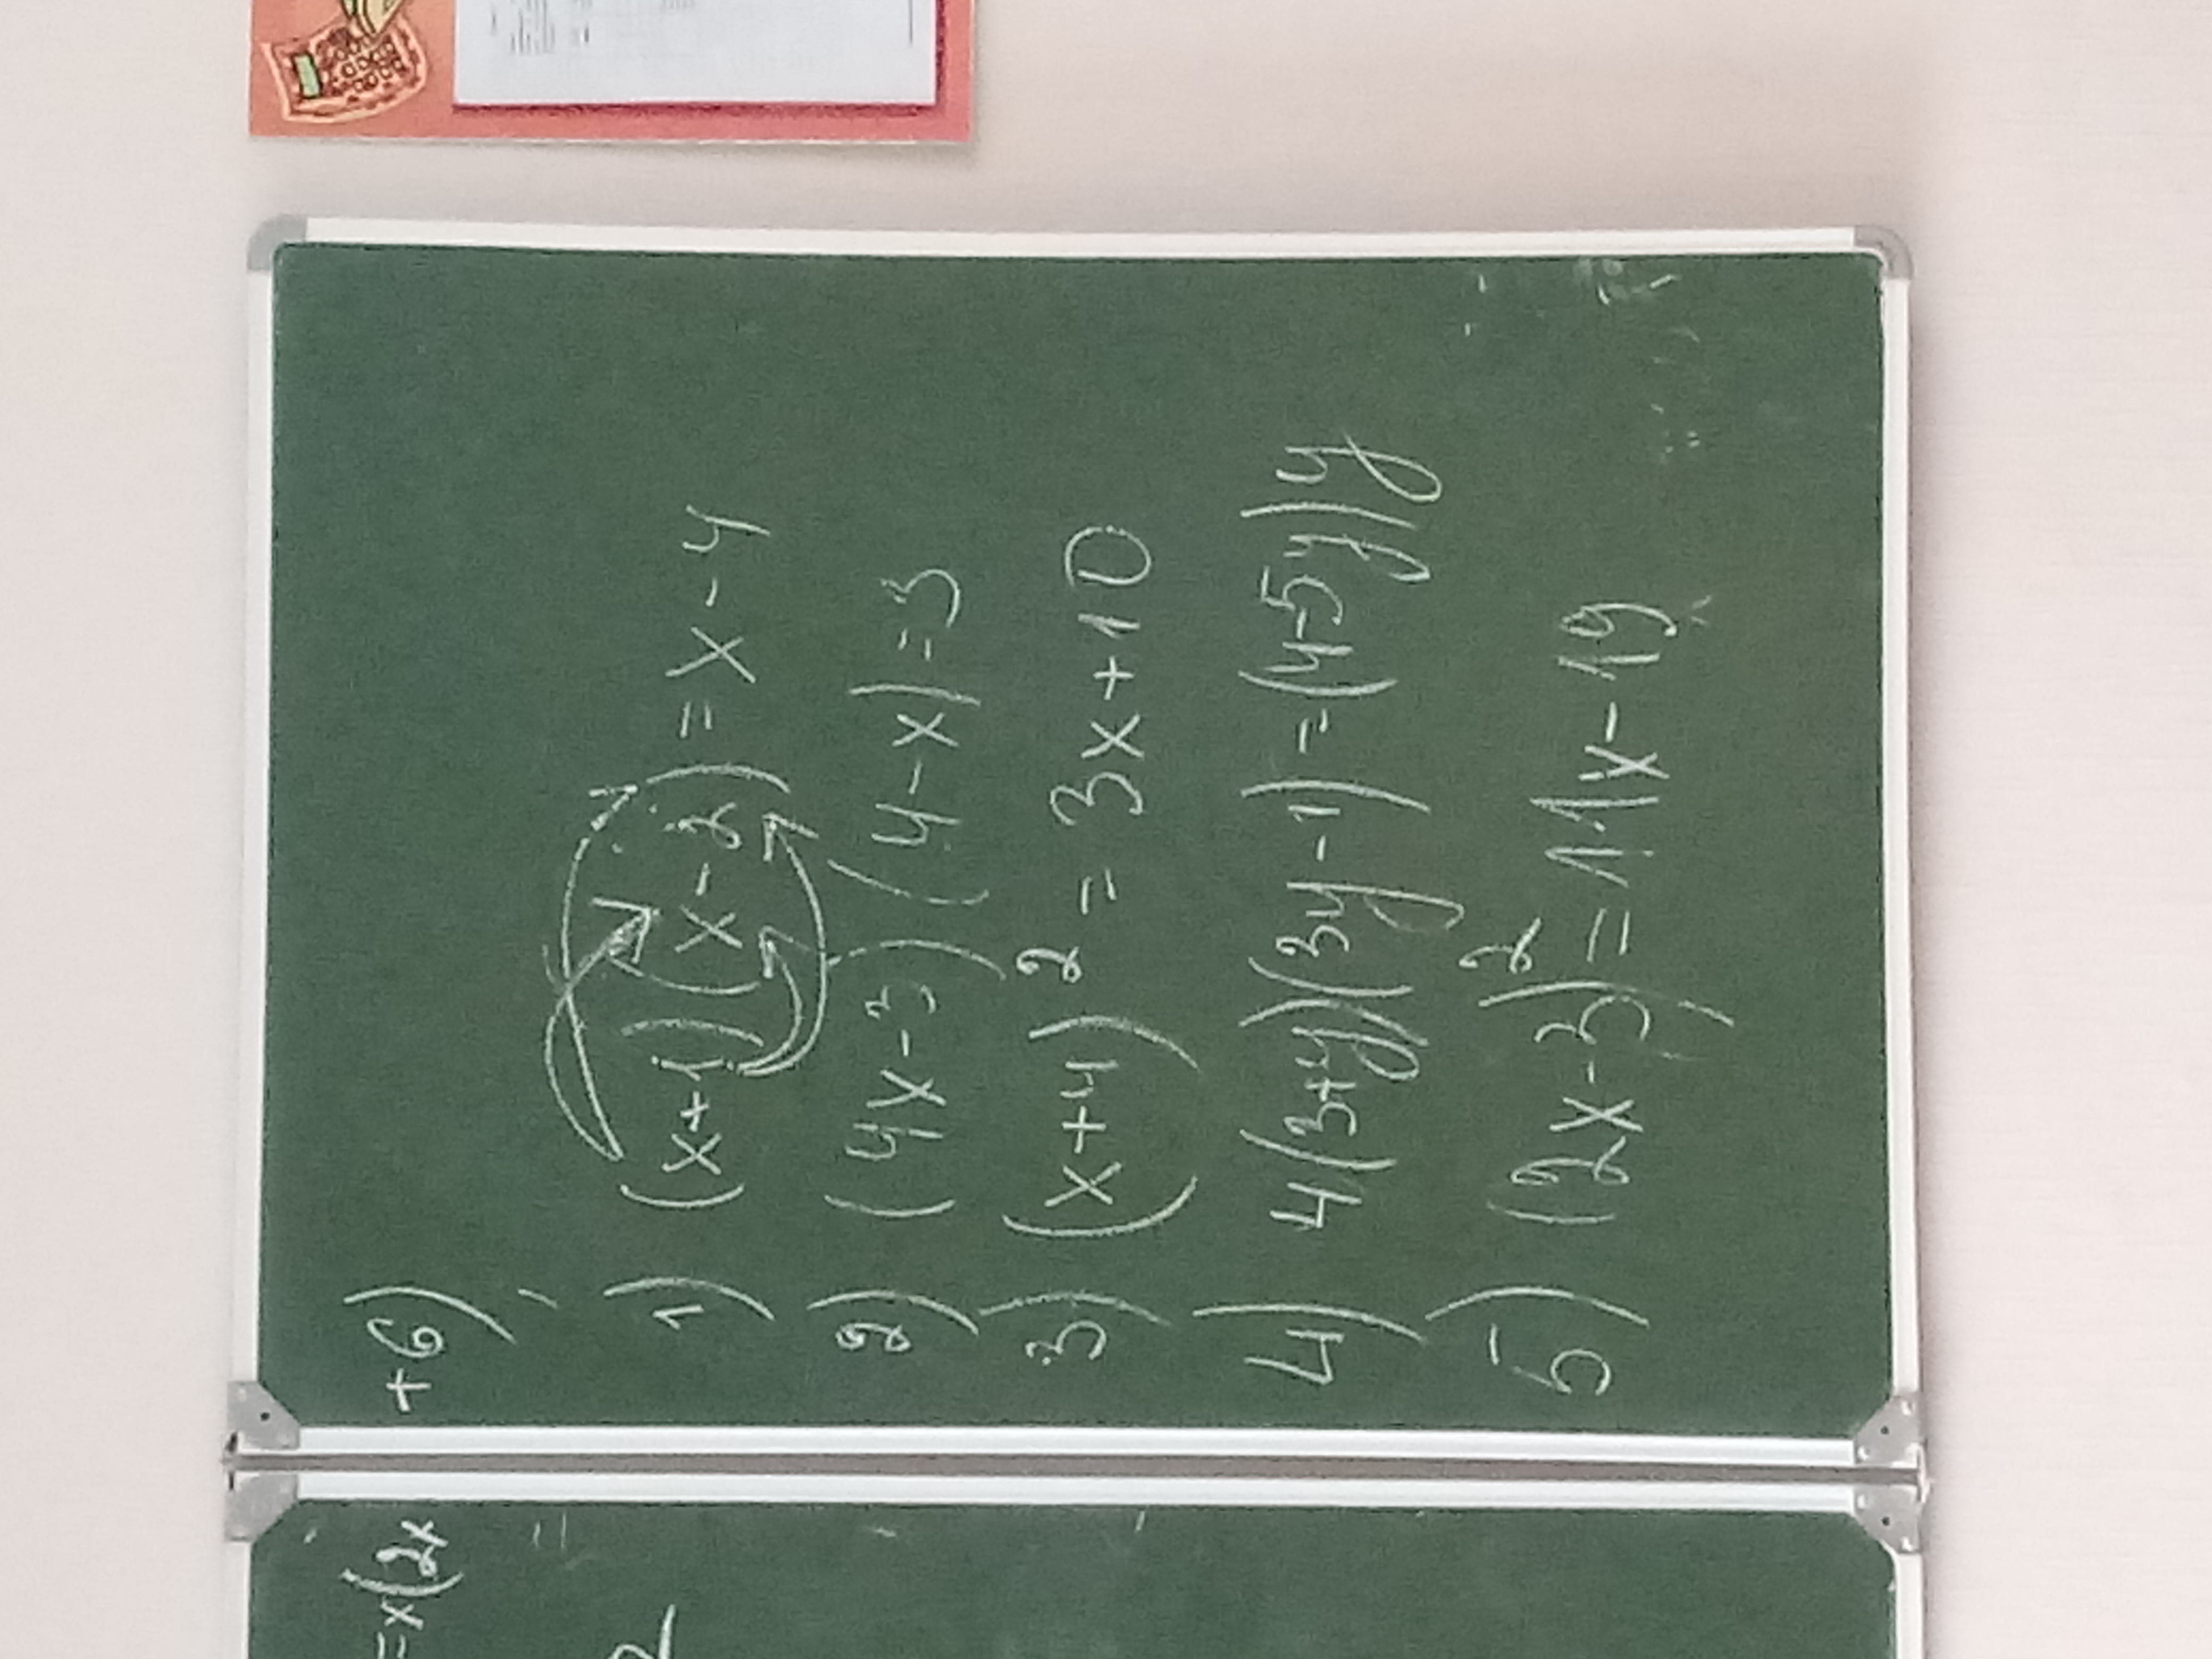 =x(2x+6)
1) (x+1)(x-2) = x-4
2) (4x-3)(4-x)=3
3) (x+4)² = 3x+10
4) 4(3+y)(3y-1) = (4-5y)y
5) (2x-3)² = 11x-19